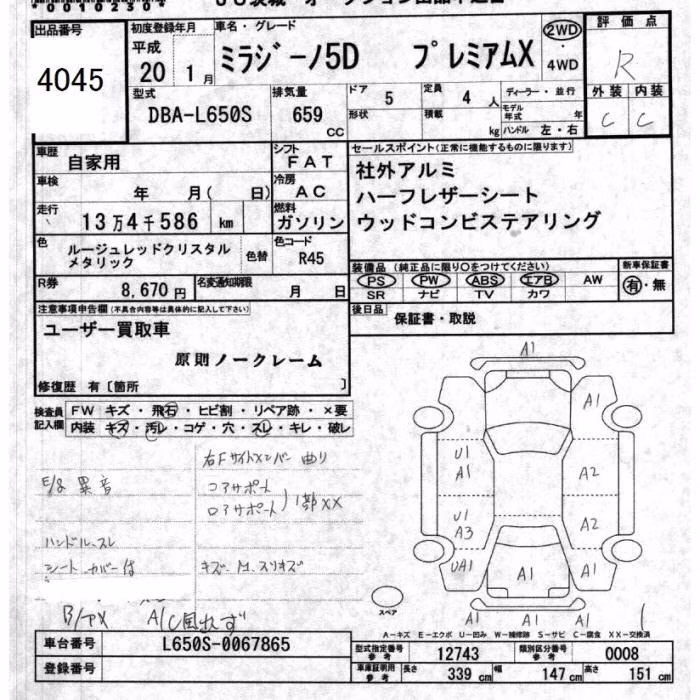 出品番号
4045
初度登録年月
平成
20 1月
車名・グレード
ミラジーノ5D プレミアムX
2WD
・
4WD
評価点
R
外装 内装
C C
型式
DBA-L650S
排気量
659
CC
ドア
5
定員
4人
形状
積載
kg
ディーラー・並行
モデル
年式 年
ハンドル 左・右
車歴
自家用
シフト
FAT
車検
年 月( 日)
冷房
AC
走行
13万4千586 km
燃料
ガソリン
色
ルージュレッドクリスタル
メタリック
色替
色コード
R45
R券
8,670円
名変通知期限
月 日
セールスポイント(正常に機能するものに限ります)
社外アルミ
ハーフレザーシート
ウッドコンビステアリング
装備品(純正品に限り○をつけてください)
PS PW ABS エアB AW
SR ナビ TV カワ
新車保証書
有・無
後日品
保証書・取説
注意事項申告欄(不具合内容等は具体的に記入して下さい)
ユーザー買取車
原則ノークレーム
修復歴 有〔箇所 〕
検査員
記入欄
FW キズ・飛石・ヒビ割・リペア跡・×要
内装 キズ・汚レ・コゲ・穴・スレ・キレ・破レ
右Fサイドメンバー曲り
E/g 異音
コアサポート
ロアサポート 1部XX
ハンドルスレ
シート カバー付
キズ、M、スリキズ
A/C風出ず
A1
A1
U1
A1
A2
U1
A3
A2
UA1
A1
A1
A1 A1 A1
スペア
A-キズ E-エクボ U-凹み W-補修跡 S-サビ C-腐食 XX-交換済
車台番号
L650S-0067865
登録番号
型式指定番号
参考
12743
類別区分番号
参考
0008
車庫証明用
参考
長さ
339cm
幅
147cm
高さ
151cm